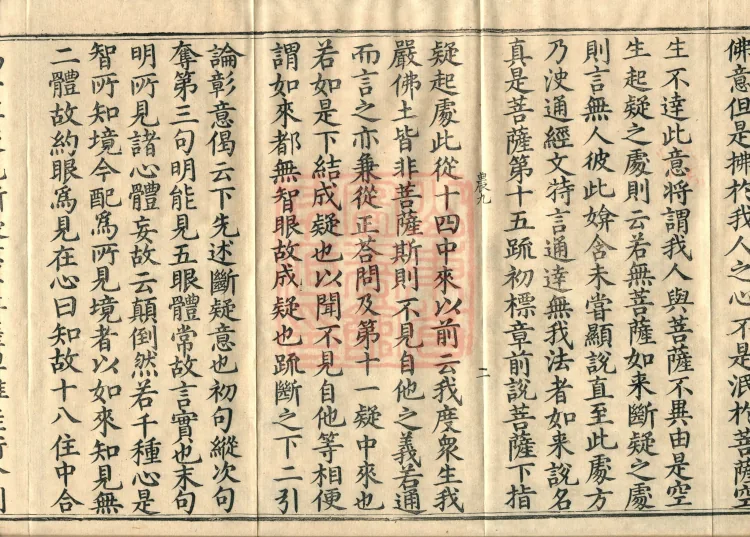 佛意但是拂於我人之心不是泯於菩薩空
生不達此意將謂我人與菩薩不異由是空
生起疑之處則云若無菩薩如来斷疑之處
則言無人彼此媕含未嘗顯說直至此處方
乃洩通經文特言通達無我法者如来說名
真是菩薩第十五疏初標章前說菩薩下指
農九
二
疑起處此從十四中來以前云我度衆生我
嚴佛土皆非菩薩斯則不見自他之義若通
而言之亦兼從正荅問及第十一疑中來也
若如是下結成疑也以聞不見自他等相便
謂如來都無智眼故成疑也疏斷之下二引
論彰意偈云下先述斷疑意也初句縱次句
奪第三句明能見五眼體常故言實也末句
明所見諸心體妄故云顛倒然若千種心是
智所知境今配爲所見境者以如來知見無
二體故約眼爲見在心曰知故十八住中合